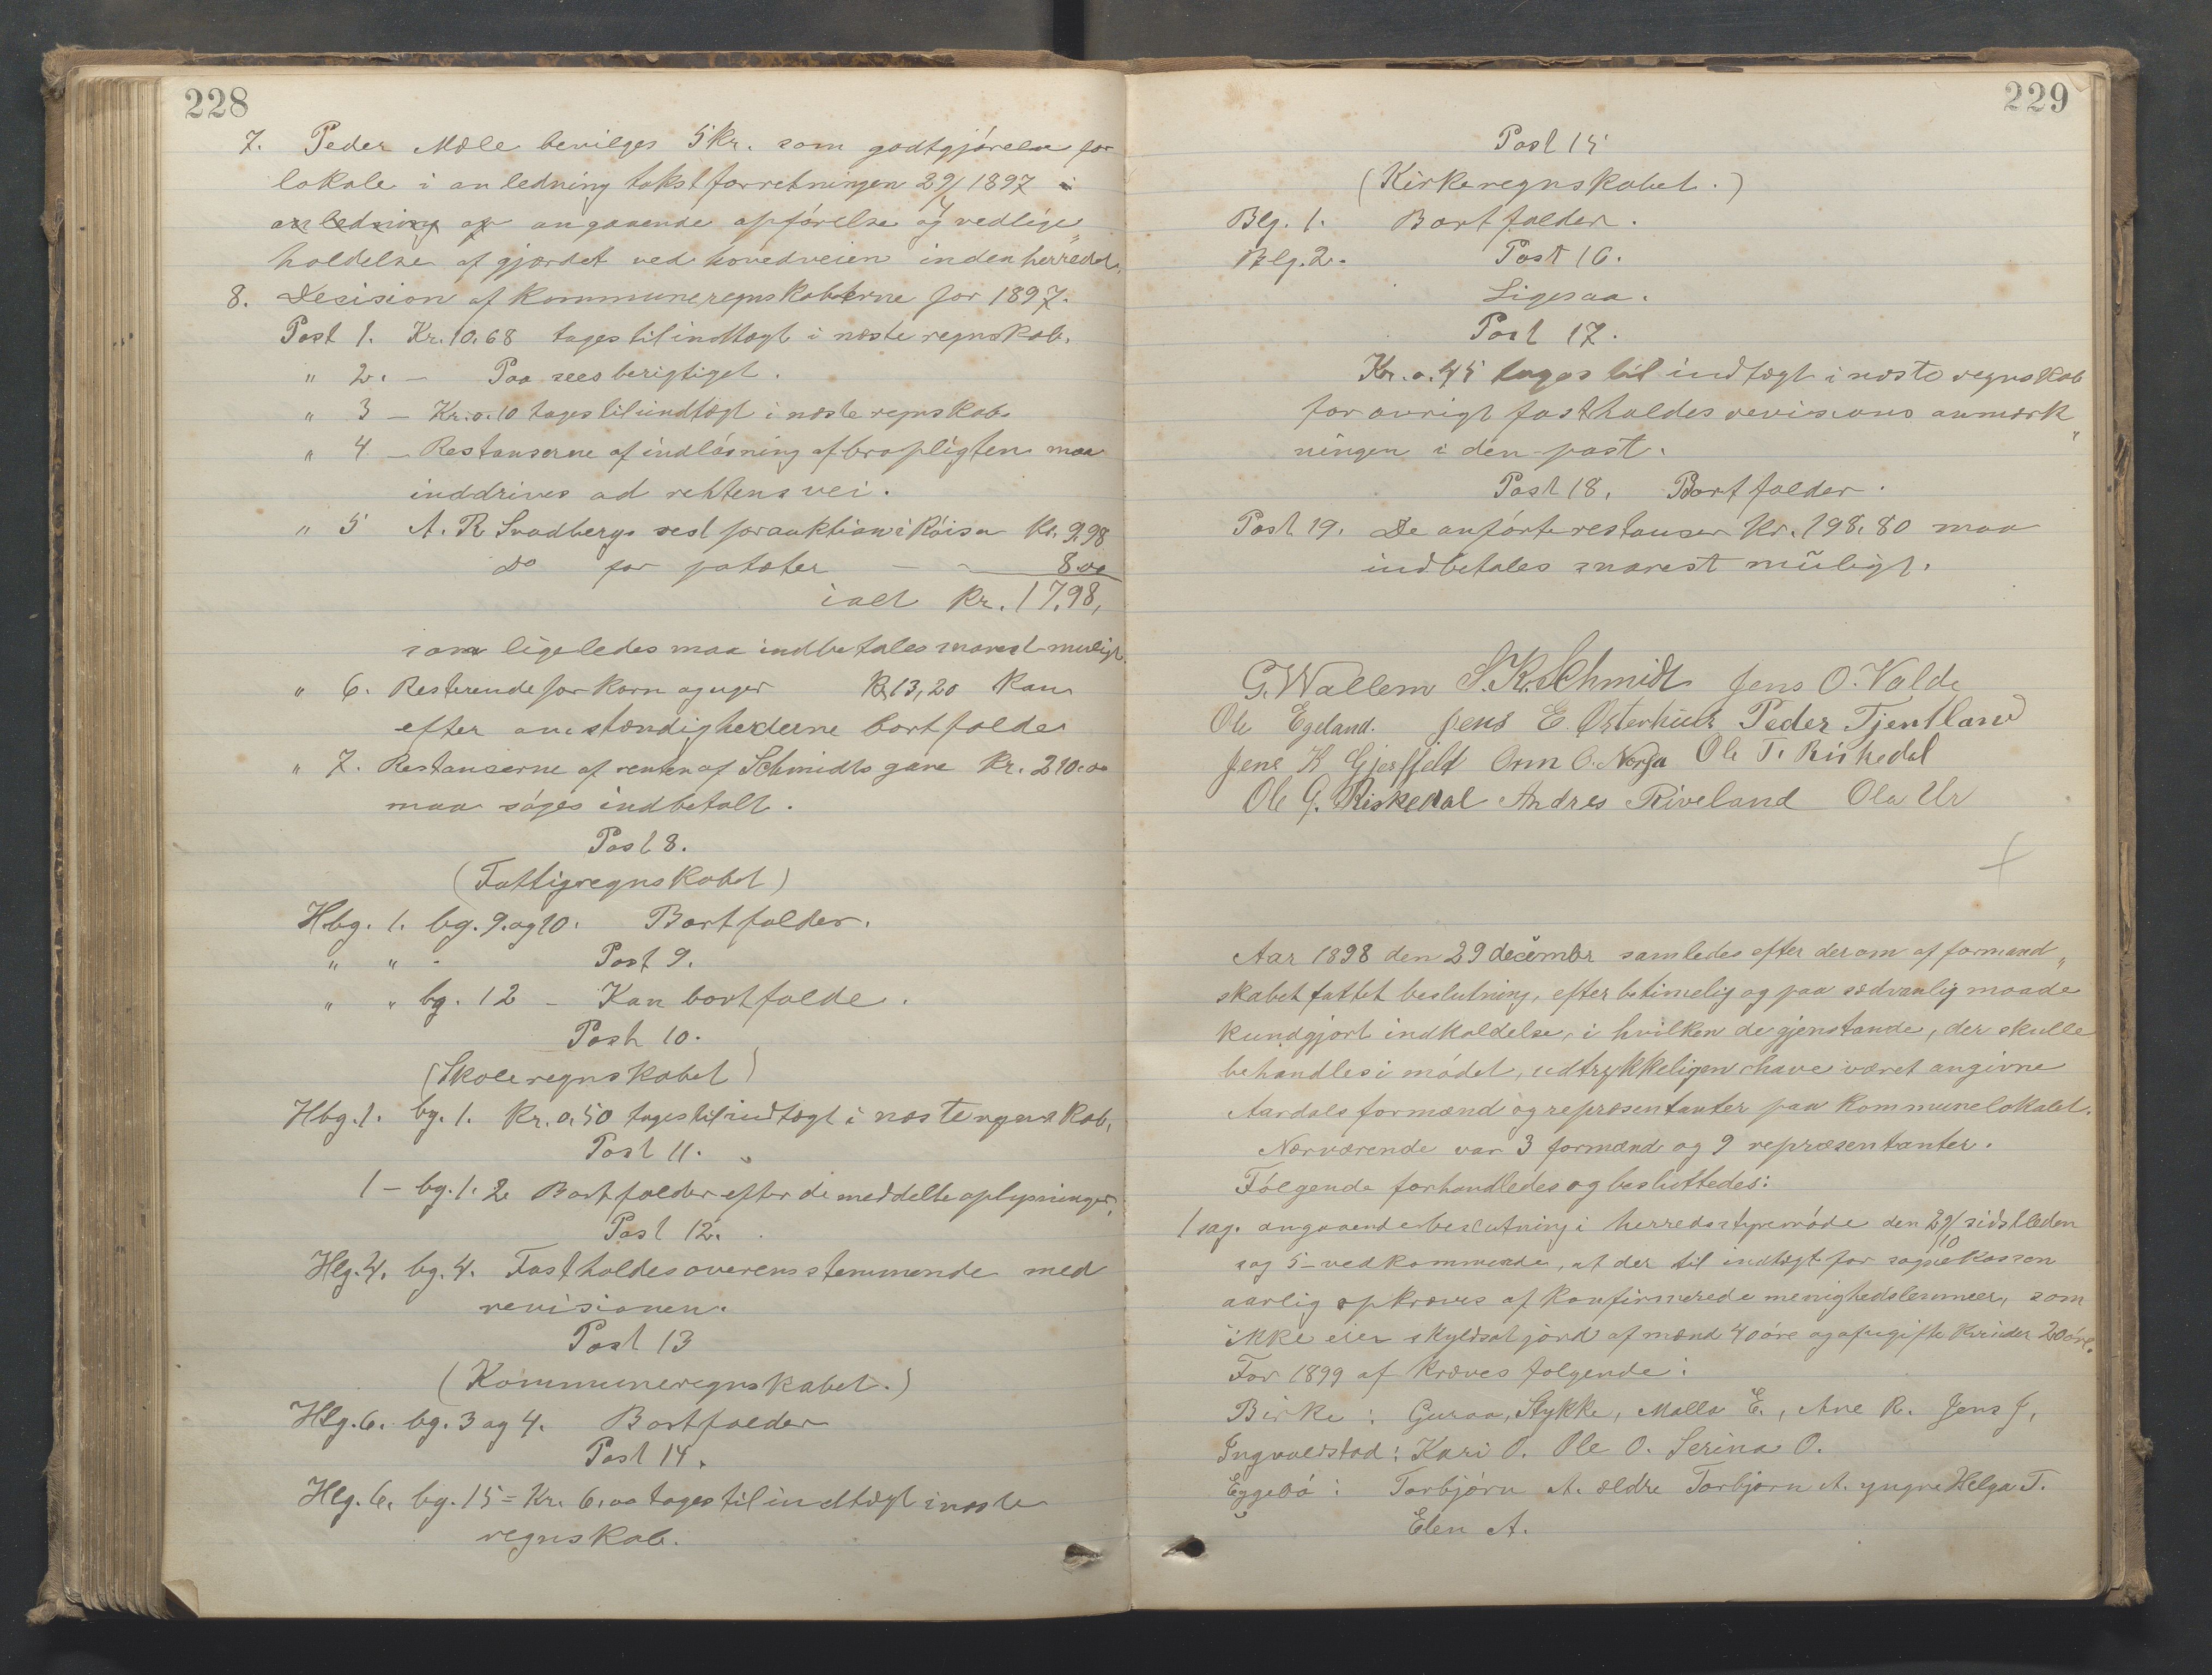 228
7. Peder Mæle bevilges 5 kr. som godtgjørelse for
lokale i anledning takstforretningen 29/4 1897 i
anledning af angaaende opførelse og vedlige„
holdelse af gjærdet ved hovedveien inden herredet.
8. Decision af kommuneregnskaberne for 1897.
Post 1. Kr. 10,68 tages til indtægt i næste regnskab.
„ 2. – Paa sees berigtiget.
„ 3 – Kr. 0.10 tages til indtægt i næste regnskab
„ 4 – Restanserne af indløsning af bropligten maa
inddrives ad rettens vei.
„ 5 A. R. Svadbergs rest for auktion i Røisa Kr. 9,98
Do for poteter – – 8.00
ialt Kr. 17,98,
som ligeledes maa indbetales snarest muligt.
„ 6. Resterende for korn og uger Kr 13,20 kan
efter omstændighederne bortfalde
„ 7. Restanserne af renten af Schmidts gave Kr. 210.00
maa søges indbetalt.
Post 8.
(Fattigregnskabet)
Hbg. 1. bg. 9. og 10. Bortfalder.
„ „ - Post 9.
„ „ bg. 12 – Kan bortfalde.
Post 10.
(Skoleregnskabet)
Hbg. 1. bg. 1. Kr. 0,50 tages til indtægt i næste regnskab.
Post 11.
1 – bg. 1. 2 Bortfalder efter de meddelte oplysninger.
Post 12.
Hlg. 4. bg. 4. Fastholdes overensstemmende med
revisionen.
Post 13
(Kommuneregnskabet.)
Hlg. 6. bg. 3 og 4. Bortfalder
Post 14.
Hlg. 6. bg. 15 = Kr. 6,00 tages til indtægt i næste
regnskab.
229
Post 15
(Kirkeregnskabet.)
Blg. 1. Bortfalder.
Blg. 2. Post 16.
Ligesaa.
Post 17.
Kr. 0.45 tages til indtægt i næste regnskab
for øvrigt fastholdes revisions anmærk„
ningen i den post.
Post 18. Bortfalder.
Post 19. De anførte restanser Kr. 198.80 maa
indbetales snarest muligt.
G. Wallem S. K. Schmidt Jens O. Valde
Ole Egeland. Jens E. Østerhus Peder Tjentland
Jens K Gjerffjeld Orm O. Norja Ole T. Riskedal
Ole G. Riskedal Andres Riveland Ola Ur
Aar 1898 den 29 december samledes efter derom af formand„
skabet fattet beslutning, efter betimelig og paa sædvanlig maade
kundgjort indkaldelse, i hvilken de gjenstande, der skulle
behandles i mødet, udtrykkeligen have været angivne
Aardals formænd og repræsentanter paa kommunelokalet.
Nærværende var 3 formænd og 9 repræsentanter.
Følgende forhandledes og besluttedes:
1 sag. angaaende beslutning i herredsstyremøde den 29/10 sidstleden
sag 5 – vedkommende, at der til indtægt for sognekassen
aarlig opkræves af konfirmerede menighedslemmer, som
ikke eier skyldsat jord af mænd 40 øre og af ugifte kvinder 20 øre.
For 1899 afkræves følgende:
Birke: Guraa, Stykke, Malla E., Ane R. Jens J,
Ingvaldstad: Kari O. Ole O. Serina O.
Eggebø: Torbjørn A. ældre Torbjørn A. yngre Helga T.
Elen A.